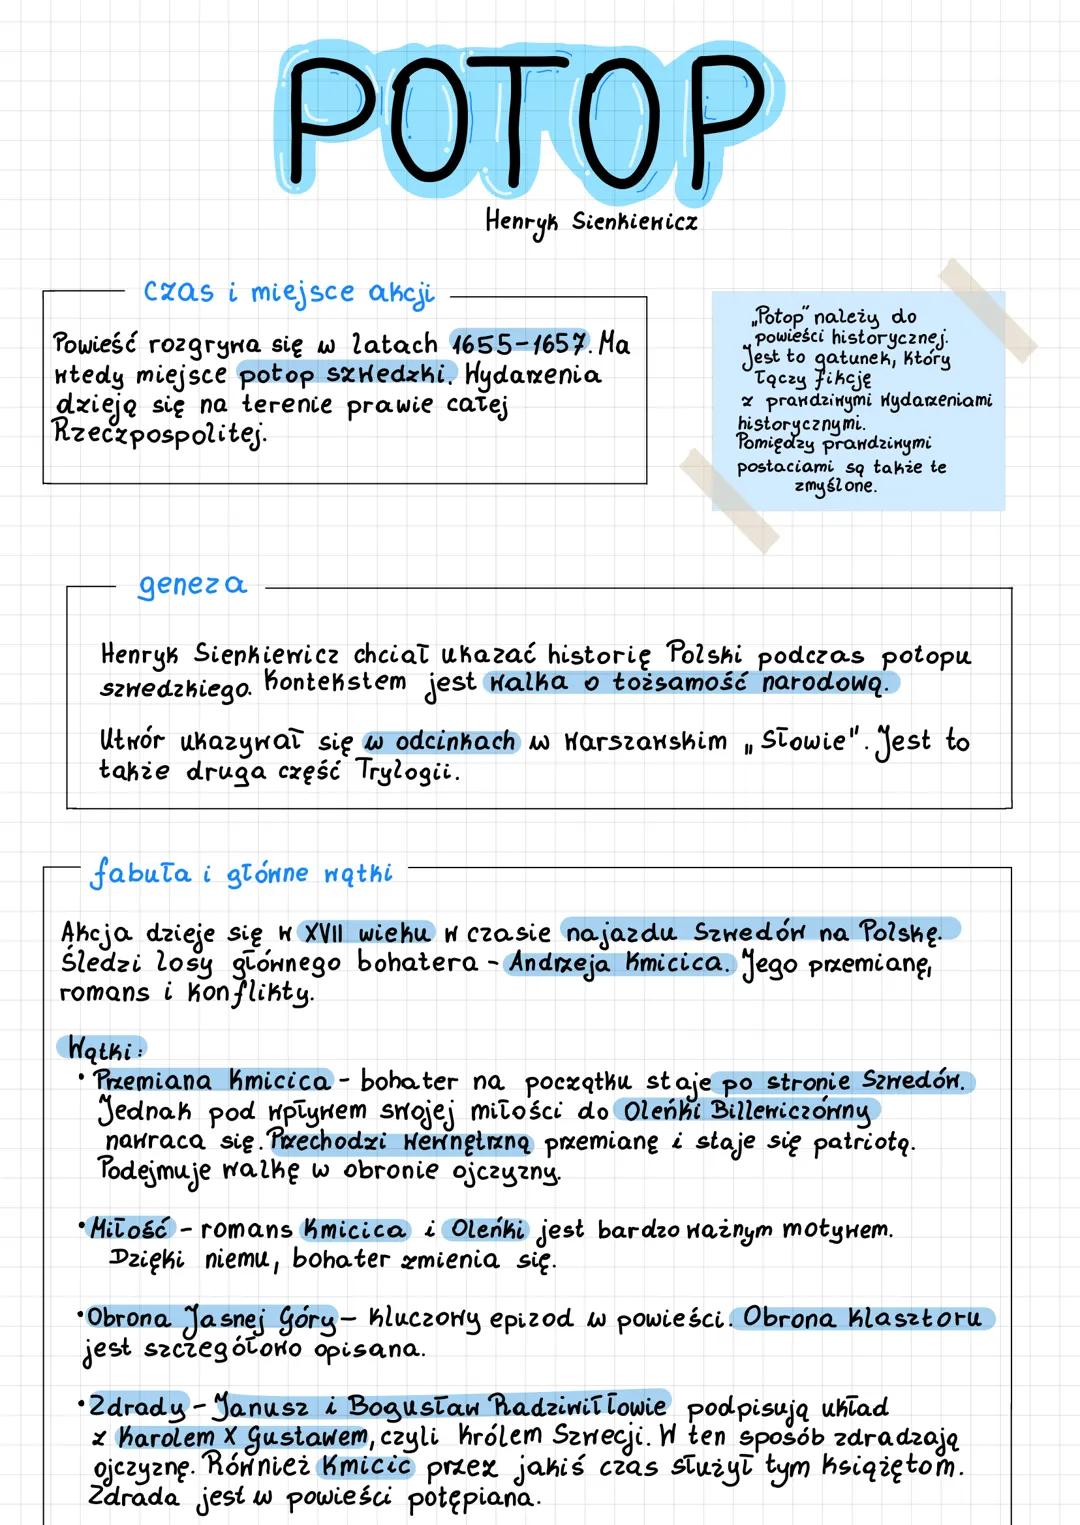 POTOP
Henryk Sienkiewicz
czas i miejsce akcji
Powieść rozgrywa się w latach 1655-1657. Ma
wtedy miejsce potop szwedzki. Wydarzenia
dzieją się na terenie prawie całej
Rzeczpospolitej.
„Potop" należy do
powieści historycznej.
Jest to gatunek, który
łączy fikcję
z prawdziwymi wydarzeniami
historycznymi.
Pomiędzy prawdziwymi
postaciami są także te
zmyślone.
geneza
Henryk Sienkiewicz chciał ukazać historię Polski podczas potopu
szwedzkiego. Kontekstem jest walka o tożsamość narodową.
Utwór ukazywał się w odcinkach w Warszawskim „Słowie". Jest to
także druga część Trylogii.
fabuła i główne wątki
Akcja dzieje się w XVII wieku w czasie najazdu Szwedów na Polskę.
Śledzi losy głównego bohatera - Andrzeja Kmicica. Jego przemianę,
romans i konflikty.
Wątki:
• Przemiana Kmicica - bohater na początku staje po stronie Szwedów.
Jednak pod wpływem swojej miłości do Oleńki Billewiczówny
nawraca się. Przechodzi wewnętrzną przemianę i staje się patriotą.
Podejmuje walkę w obronie ojczyzny.
• Miłość - romans Kmicica i Oleńki jest bardzo ważnym motywem.
Dzięki niemu, bohater zmienia się.
• Obrona Jasnej Góry - kluczowy epizod w powieści. Obrona klasztoru
jest szczegółowo opisana.
• Zdrady - Janusz i Bogusław Radziwiłłowie podpisują układ
z Karolem X Gustawem, czyli królem Szwecji. W ten sposób zdradzają
ojczyznę. Również Kmicic przez jakiś czas służył tym książętom.
Zdrada jest w powieści potępiana.